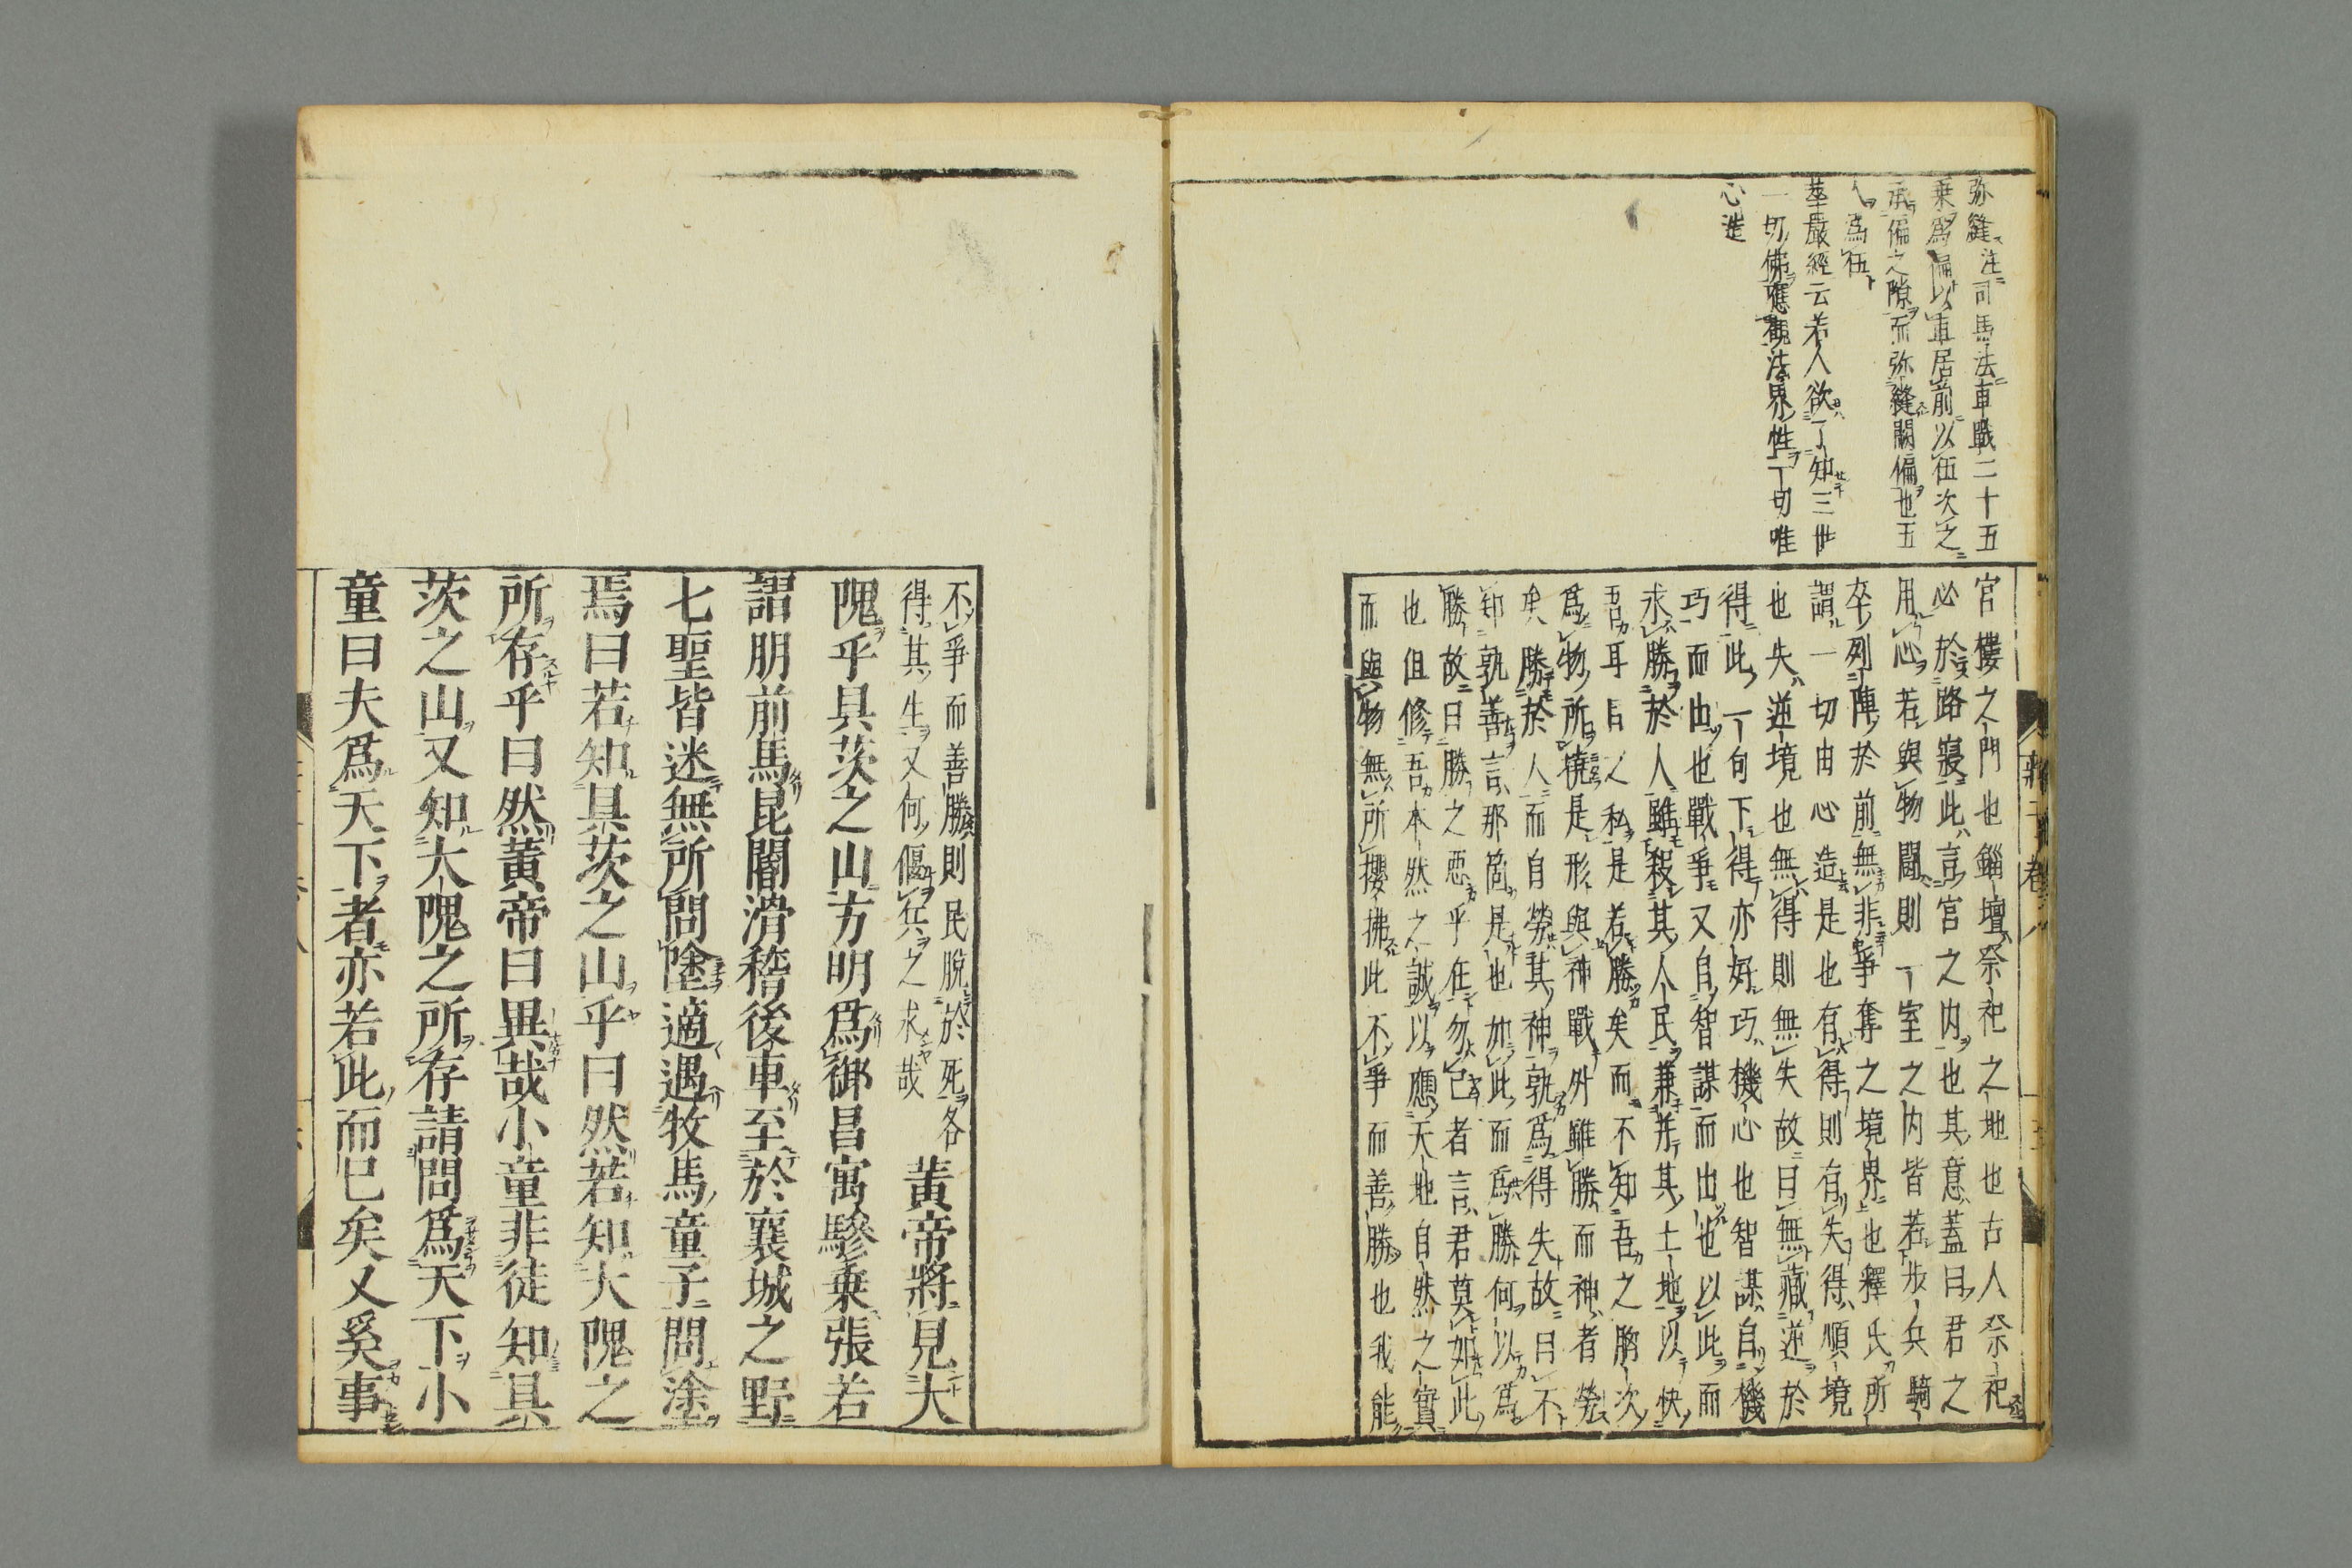 弥縫注司馬法車戰二十五
乗爲偏以車居前以伍次之
承偏之隙而弥縫闕偏也五
人爲伍
華嚴經云若人欲了知三世
一切佛應觀法界性一切唯
心造
官樓之門也錙壇祭祀之地也古人祭祀
必於路寢此言宮之内也其意蓋曰君之
用心若與物鬪則一室之内皆若步兵騎
卒列陣於前無非爭奪之境界也釋氏所
謂一切由心造是也有得則有失得順境
也失逆境也無得則無失故曰無藏逆於
得此一句下得亦好巧機心也智謀自機
巧而出也戰爭又自智謀而出也以此而
求勝於人雖殺其人民兼并其土地以快
吾耳目之私是若勝矣而不知吾之胸次
爲物所撓是形與神戰外雖勝而神者勞
矣勝於人而自勞其神孰爲得失故曰不
知孰善言那箇是也如此而爲勝何以爲
勝故曰勝之惡乎在勿已者言君莫如此
也但修吾本然之誠以應天地自然之實
而與物無所攖拂此不爭而善勝也我能
不爭而善勝則民脫於死各
得其生又何偃兵之求哉
黄帝將見大
隗乎具茨之山方明爲御昌寓驂乗張若
謵朋前馬昆閽滑稽後車至於襄城之野
七聖皆迷無所問塗適遇牧馬童子問塗
焉曰若知具茨之山乎曰然若知大隗之
所存乎曰然黄帝曰異哉小童非徒知具
茨之山又知大隗之所存請問爲天下小
童曰夫爲天下者亦若此而已矣又奚事